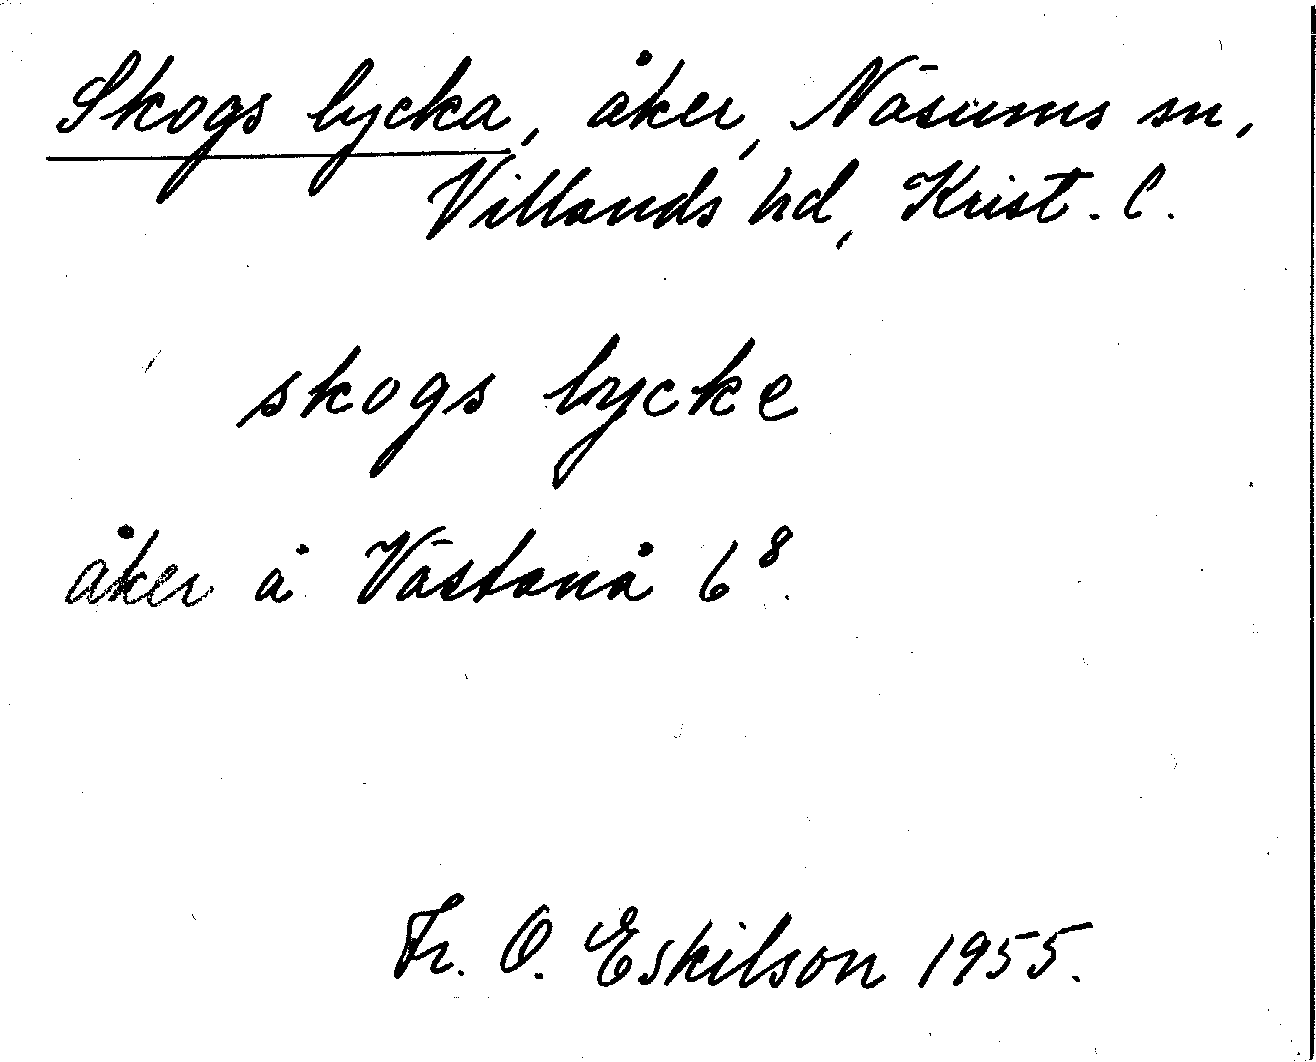 Skogs lycka, åker, Näsums sn,
Villands hd, Krist. l.
skogs lycke
åker å Västanå 6⁸.
Fr. O. Eskilson 1955.